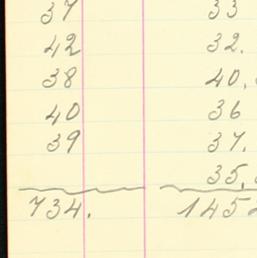 37 33
42 32.
38 40.
40 36
39 37.
35.
734. 145